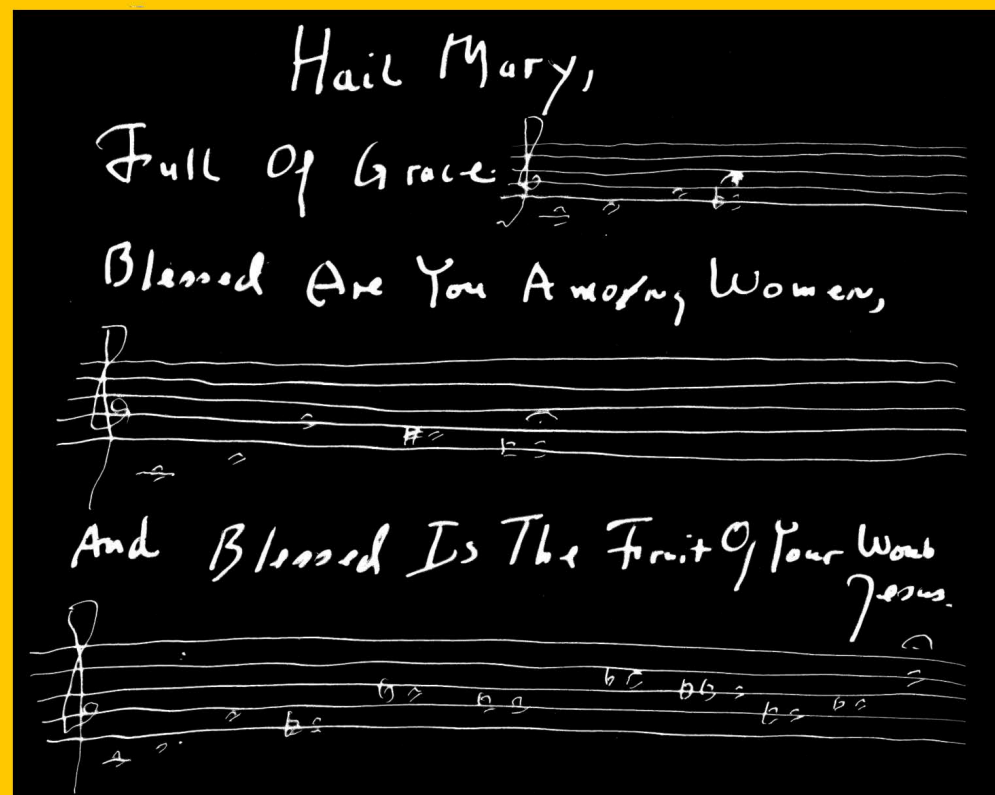 Hail Mary,
Full Of Grace.
Blessed Are You Among Women,
And Blessed Is The Fruit Of Your Womb
Jesus.